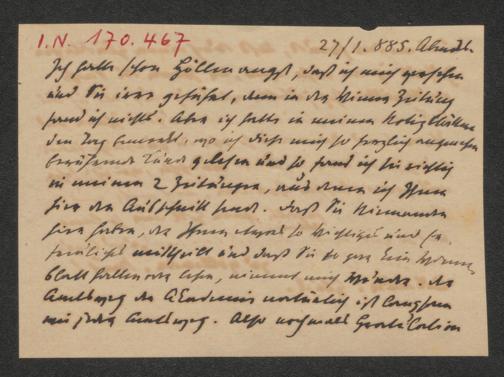 I.N. 170.467
27/1. 885. Abends.
Ich hatte schon Höllenangst, daß ich mich versehen
und Sie irre geführt, denn in der Wiener Zeitung
fand ich nichts. Aber ich hatte in meinen Notizblättern
den Tag bemerkt, wo ich diese mich so herzlich
gelesen und so fand ich sie richtig
in meinen 2 Zeitungen, aus denen ich Ihnen
hier den Ausschnitt sende. Daß Sie Niemanden
hier haben, der Ihnen so wichtiges und
mittheilt und daß Sie so gar kein Wiener
Blatt halten oder lesen, nimmt mich Wunder. Der
Amtsweg der Akademie natürlich ist langsam
wie jeder Amtsweg. Also nochmals Gratulation